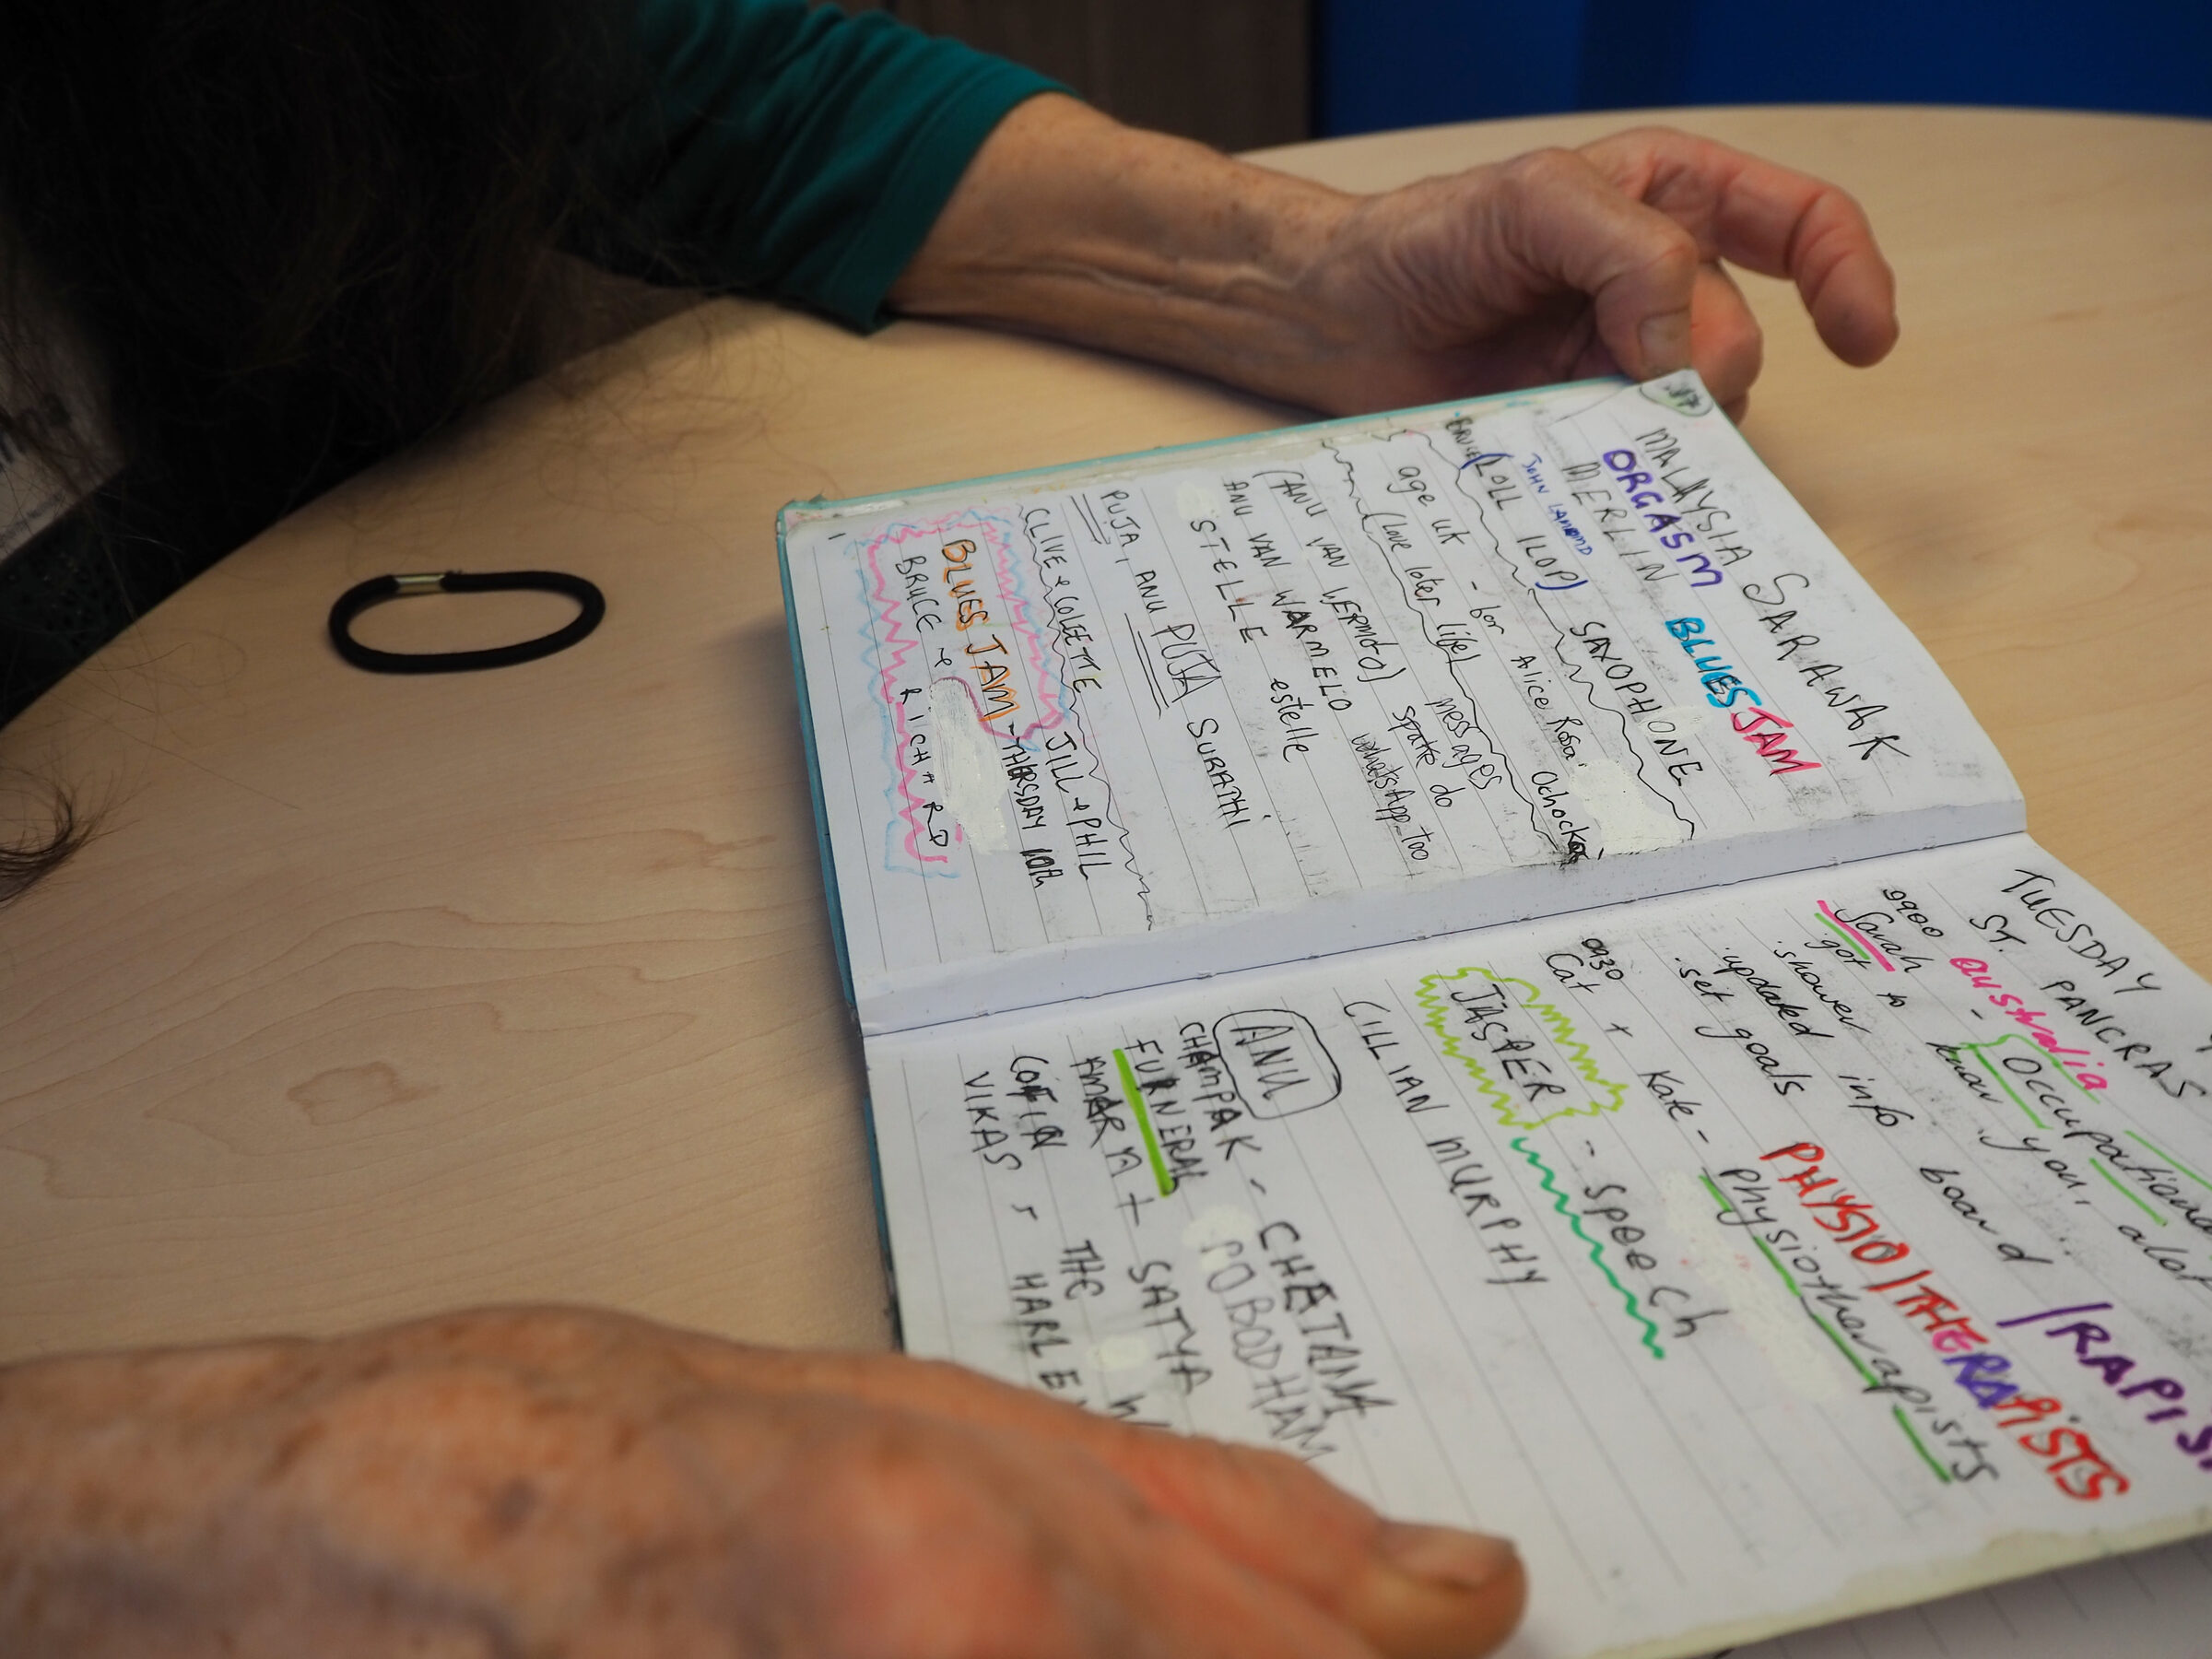 MALAYSIA SARAWAK
ORGASM BLUES JAM
MERLIN
SAXOPHONE
(LOLL ILOP)
age uk - for Alice Rosa
(love later life) messages
(ANU VAN WERMOTO) spatte do
ANU VAN WARMELO WhatsApp too
STELLE estelle
PUJA, ANU PUJA SURATHI
CLIVE & COLETTE JILL & PHIL
BLUES JAM - THURSDAY 10th
BRUCE & RICHARD
TUESDAY
ST. PANCRAS
australia
0900 - Occupational
Sarah got to know you, alot
/RAPIS
shower info board
updated
set goals
PHYSIO/THERAPISTS
0930
Cat + Kate - physiotherapists
JASPER - Speech
CILLIAN MURPHY
ANU
CHAMPAK - CHETANA
FURNERAL POBODHAM
AMARM + SATYA
COFFIN THE
VIKAS - HARLE